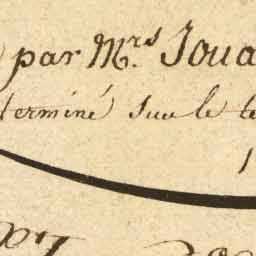 par M.rs Joua
terminé sur le te
1